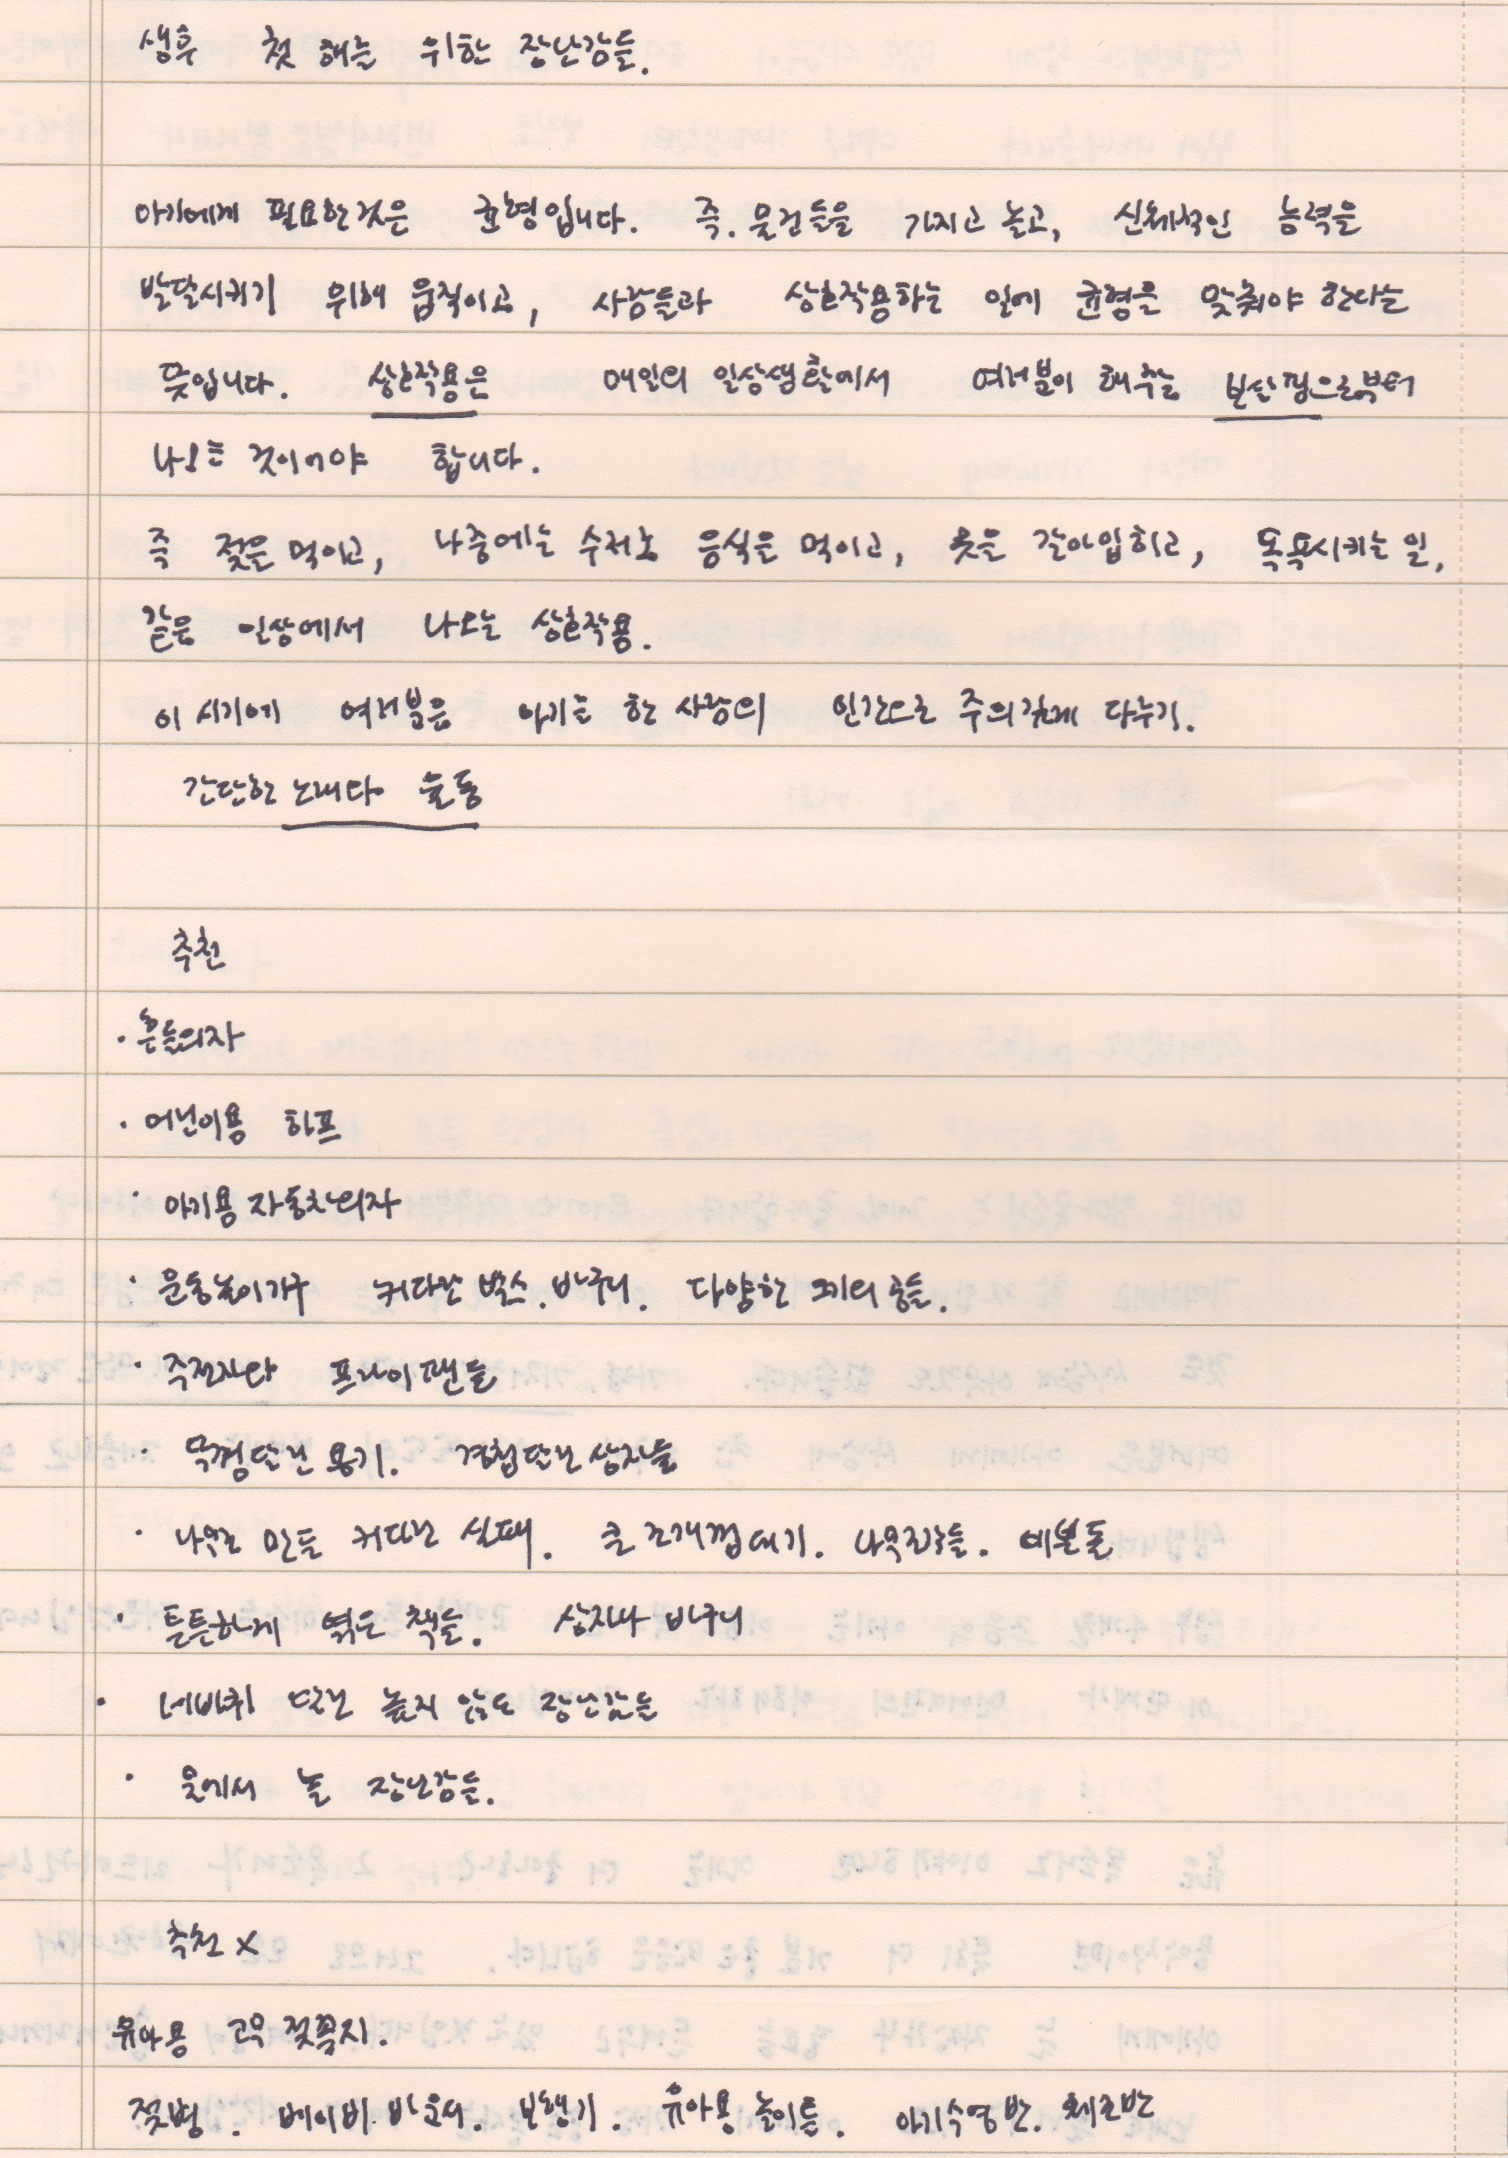 생후 첫 해를 위한 장난감들.
아기에게 필요한것은 균형입니다. 즉. 물건들을 가지고 놀고, 신체적인 능력을
발달시키기 위해 움직이고, 사람들과 상호작용하는 일에 균형을 맞춰야 한다는
뜻입니다. 상호작용은 매일의 일상생활에서 여러분이 해주는 보살핌으로부터
나오는 것이어야 합니다.
즉 젖을 먹이고, 나중에는 수저로 음식을 먹이고, 옷을 갈아입히고, 목욕시키는 일,
같은 일상에서 나오는 상호작용.
이 시기에 여러분은 아기를 한 사람의 인간으로 주의깊게 다루기.
간단한 노래다 율동
추천
· 흔들의자
· 어린이용 하프
· 아기용 자동차의자
· 운동놀이기구 커다란 박스. 바구니. 다양한 크기의 공들.
· 주전자와 프라이팬들
· 뚜껑달린 용기. 경첩달린 상자들
· 나무로 만든 커다란 실패. 큰 조개껍데기. 나무조각들. 예쁜돌
· 튼튼하게 엮은 책들. 상자나 바구니
· 네바퀴 달린 높지 않은 장난감들
· 물에서 놀 장난감들.
추천 X
유아용 고무 젖꼭지.
젖병. 베이비 바운서. 보행기. 유아용 놀이틀. 아기수영반. 체조반